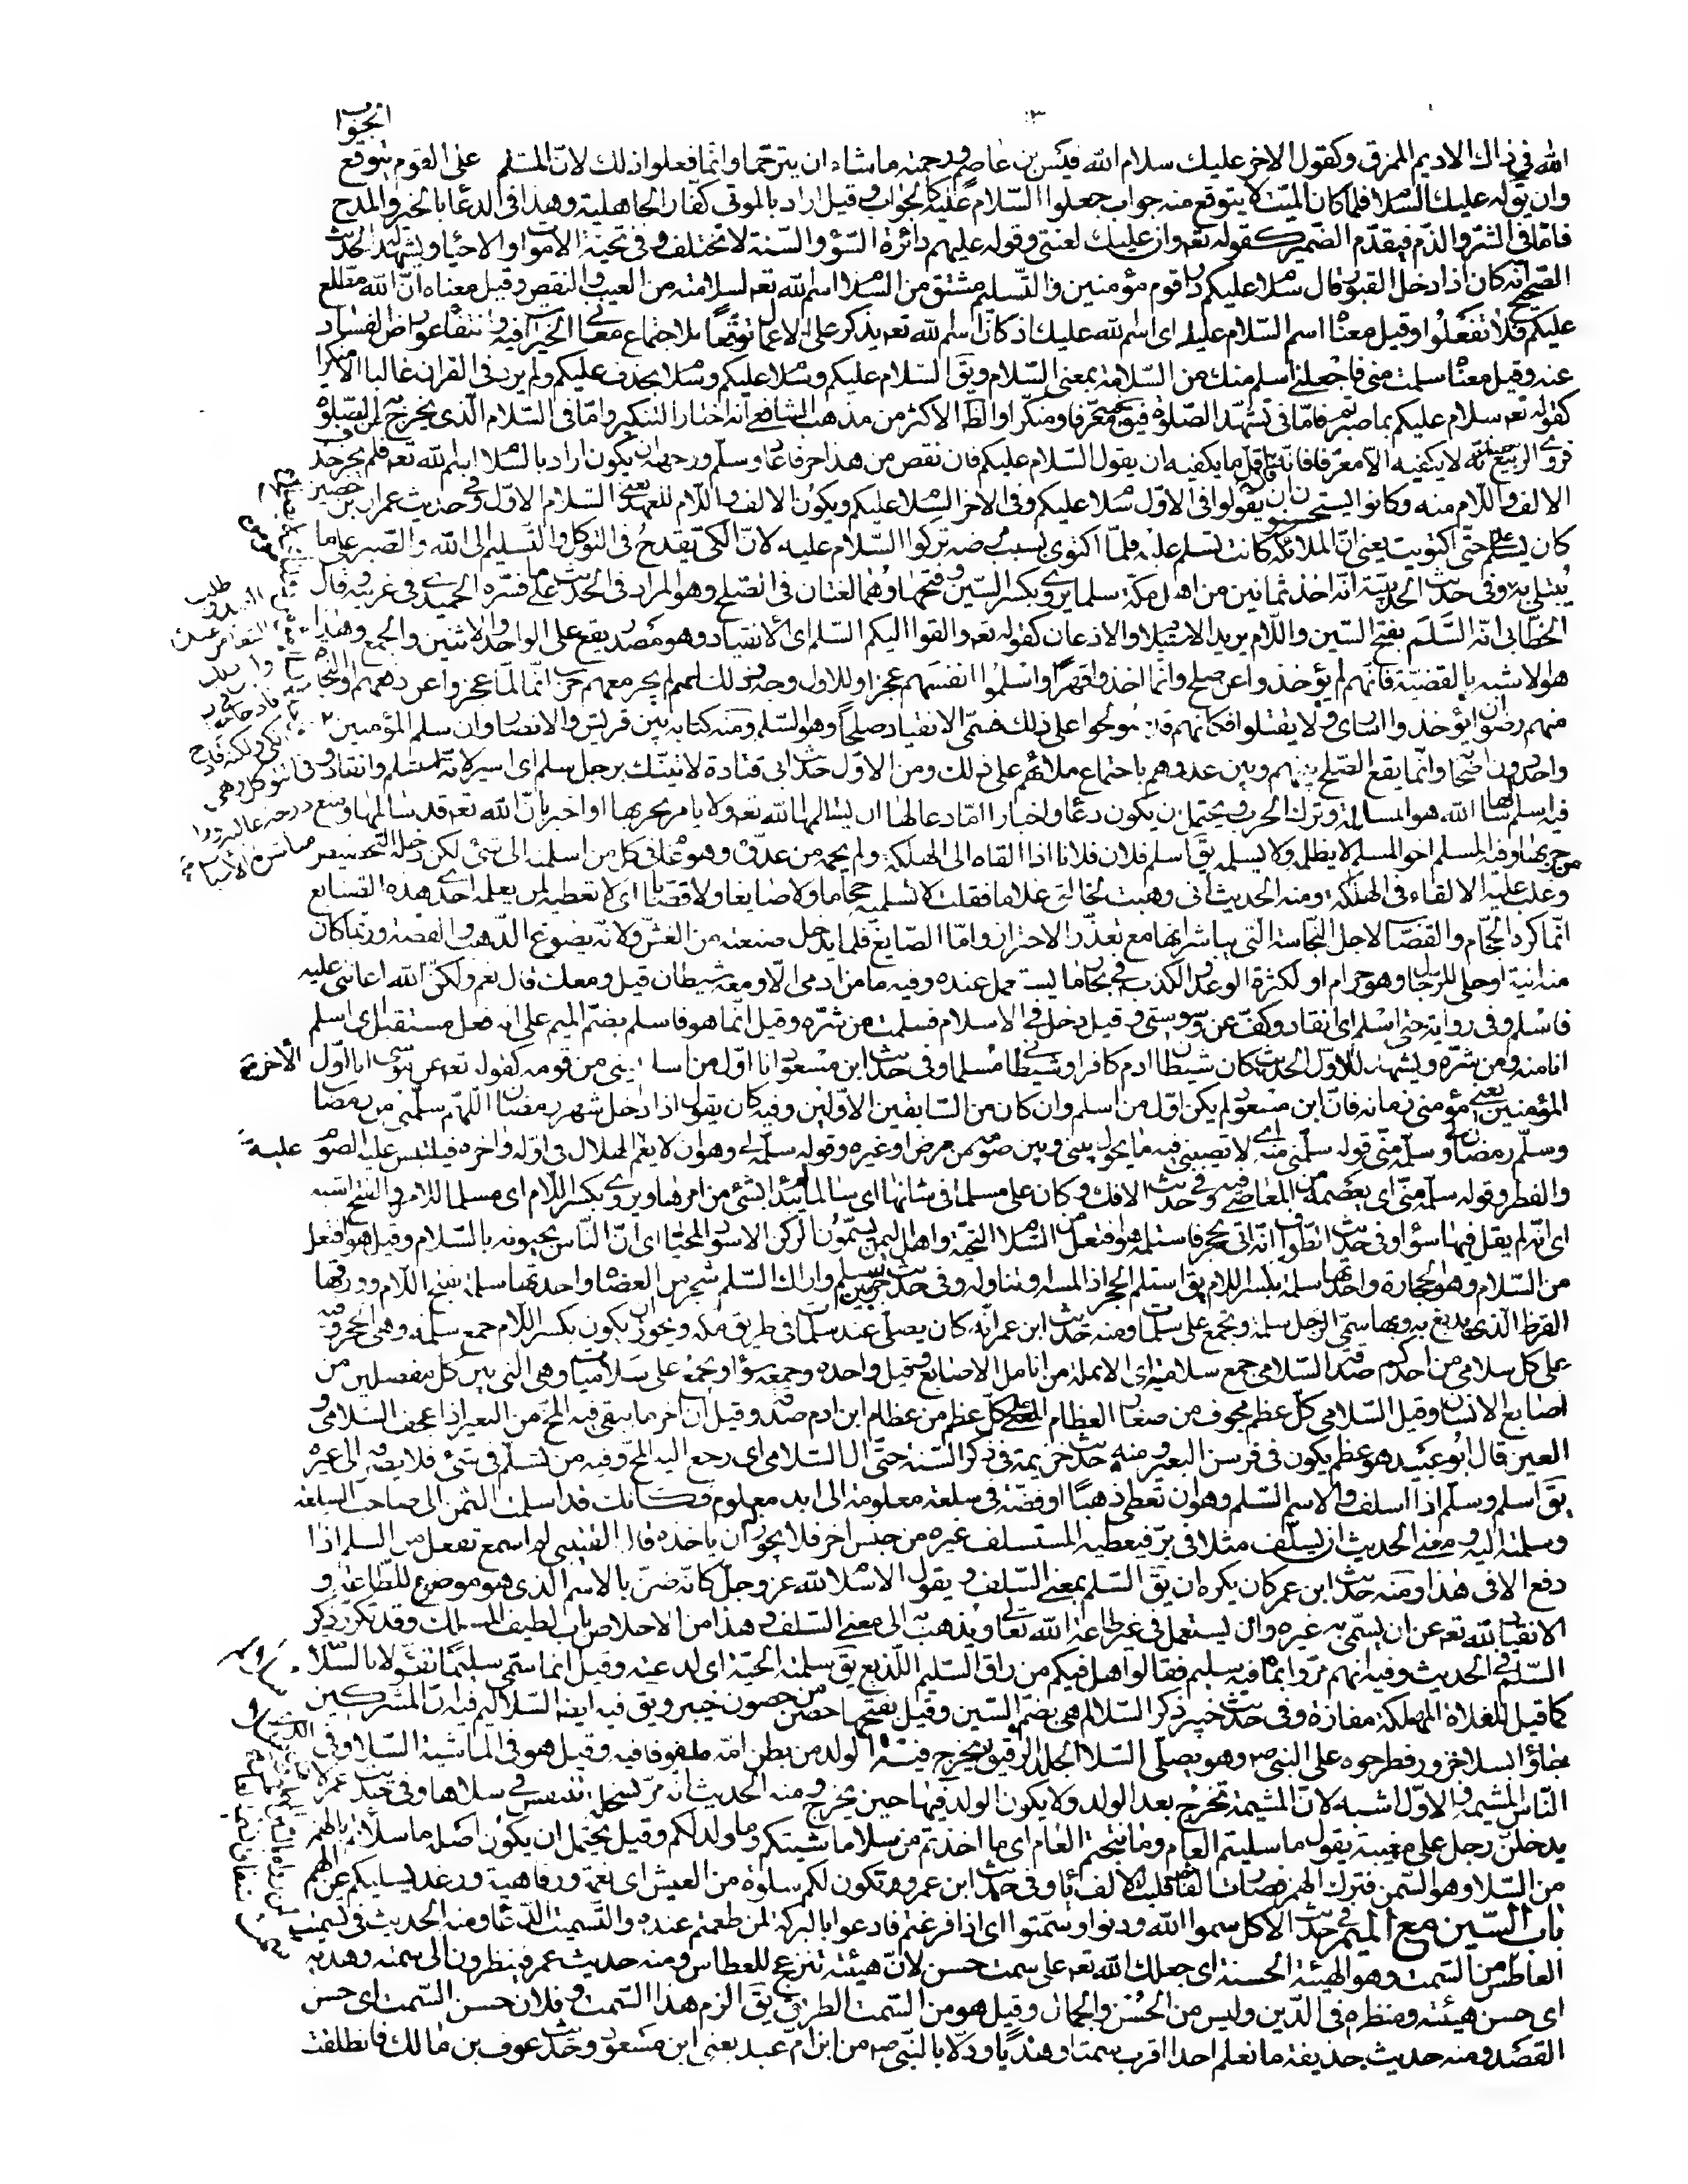 الجواب
الله في ذاك الاديم الممزق وكقول الاخر عليك سلام الله قيس بن عاصم ورحمته ما شاء ان يترحما وانما فعلوا ذلك لان المسلم على القوم يتوقع
وان يقوله عليك السلام فلما كان الميت لا يتوقع منه جواب جعلوا السلام عليه كالجواب وقيل اراد بالموتى كفار الجاهلية وهذا في الدعا بالخير والمدح
فاما في الشر والذم فيقدم الضمير كقوله تعه وان عليك لعنتي وقوله عليهم دائرة السوء والسنة لا تختلف في تحية الاموات والاحيا ويشهد له الحديث
الصحيح انه كان اذا دخل القبور قال سلام عليكم دار قوم مؤمنين والتسليم مشتق من السلام اسم الله تعه لسلامته من العيب والنقص وقيل معناه ان الله مطلع
عليكم فلا تغفلوا وقيل معناه اسم السلام عليك اى اسم الله عليك اذ كان اسم الله تعه يذكر على الاعمال توقعا لاجتماع معاني الخيرات فيه وانتفاء عوارض الفساد
عنه وقيل معناه سلمت مني فاجعلني اسلم منك من السلامة بمعنى السلام ويق السلام عليكم وسلام عليكم وسلام بحذف عليكم ولم يرد في القران غالبا الا منكرا
كقوله تعه سلام عليكم بما صبرتم فاما في تشهد الصلوة فيق فيه معرفا ومنكرا والظا الاكثر من مذهب الشافعي انه اختار التنكير واما في السلام الذى يخرج به من الصلوة
فروى الربيع عنه انه لا يكفيه الا معرفا فانه قال اقل ما يكفيه ان يقول السلام عليكم فان نقص من هذا حرفا عاد وسلم ووجهه ان يكون اراد بالسلام اسم الله تعه فلم يجز حذف
الالف واللام منه وكانوا يستحسنون ان يقولوا في الاول سلام عليكم وفي الاخر السلام عليكم ويكون الالف واللام للعهد يعني السلام الاول وفي حديث عمران بن حصين
كان يسلم علي حتى اكتويت يعني ان الملائكة كانت تسلم عليه فلما اكتوى بسبب مرضه تركوا السلام عليه لان الكي يقدح في التوكل والتسليم الى الله والصبر على ما
يبتلى به وفي حديث الحديبية انه اخذ ثمانين من اهل مكة سلما يروى بكسر السين وفتحها وهما لغتان في الصلح وهو المراد في الحديث على ما فسره الحميدى في غريبه وقال
الخطابي انه السلم بفتح السين واللام يريد الاستسلام والاذعان كقوله تعه والقوا اليكم السلم اى الانقياد وهو مصدر يقع على الواحد والاثنين والجمع وهذا
هو الاشبه بالقضية فانهم لم يؤخذوا عن صلح وانما اخذوا قهرا واسلموا انفسهم عجزا وللاول وجه وذلك انهم لم يجر معهم حرب انما لما عجزوا عن دفعهم والنجاة
منهم رضوا ان يؤخذوا اسارى ولا يقتلوا فكانهم قد صولحوا على ذلك فسمي الانقياد صلحا وهو السلم ومنه كتابه بين قريش والانصار وان سلم المؤمنين
واحد اى واضحا وانما يقع الصلح بينهم وبين عدوهم باجتماع ملائهم على ذلك ومن الاول حديث ابي قتادة لاتينك برجل سلم اى اسير لانه استسلم وانقاد و
فيه اسلم سالمها الله هو المسالمة وترك الحرب ويحتمل ان يكون دعا واخبارا اما دعا لها ان يسالمها الله تعه ولا يامر بحربها او اخبر بان الله تعه قد سالمها ومنع
من حربها وفيه المسلم اخو المسلم لا يظلمه ولا يسلمه يق اسلم فلان فلانا اذا القاه الى الهلكة ولم يحمه من عدوه وهو عام في كل من اسلمته الى شئ لكن دخله التخصيص
وغلب عليه الالقاء في الهلكة ومنه الحديث اني وهبت لخالتي غلاما فقلت لا تسلميه حجاما ولا صايغا ولا قصابا اى لا تعطيه لمن يعلمه احدى هذه الصنايع
انما كره الحجام والقصاب لاجل النجاسة التي يباشرانها مع تعذر الاحتراز واما الصايغ فلما يدخل صنعته من الغش ولانه يصوغ الذهب والفضة وربما كان
منه انية او حلى للرجال وهو حرام او لكثرة الوعد والكذب في انجاز ما يستعمل عنده وفيه ما من ادمي الا ومعه شيطان قيل ومعك قال نعم ولكن الله اعانني عليه
فاسلم وفي رواية حتى اسلم اى انقاد وكف عن وسوستي وقيل دخل في الاسلام فسلمت من شره وقيل انما هو فاسلم بضم الميم على انه فعل مستقبل اى اسلم
انا منه ومن شره ويشهد للاول الحديث كان شيطان ادم كافرا وشيطاني مسلما وفي حديث ابن مسعود انا اول من اسلم يعني من قومه كقوله تعه عن موسى انا اول
المؤمنين يعني مؤمني زمانه فان ابن مسعود لم يكن اول من اسلم وان كان من السابقين الاولين وفيه كان يقول اذا دخل شهر رمضان اللهم سلمني من رمضان
وسلم رمضان لي وسلمه مني قوله سلمني منه اى لا تصيبني فيه ما يحول بيني وبين صومه من مرض او غيره وقوله سلمه لي وهو ان لا يغم الهلال في اوله واخره فيلتبس عليه الصوم
والفطر وقوله سلمه مني اى يعصمه من المعاصي فيه وفي حديث الافك وكان على مسلما في شانها اى سالما لم يبد بشئ من امرها ويروى بكسر اللام اى مسلما للامر والفتح اشبه
اى انه لم يقل فيها سوءا وفي حديث الطواف انه اتى الحجر فاستلمه هو افتعل من السلام التحية واهل اليمن يسمون الركن الاسود المحيا اى ان الناس يحيونه بالسلام وقيل هو افتعل
من السلام وهو الحجارة واحدتها سلمة بكسر اللام يق استلم الحجر اذا لمسه وتناوله وفي حديث جرير بين سلم واراك السلم شجر من العضاه واحدتها سلمة بفتح اللام وورقها
القرظ الذى يدبغ به وبها سمى الرجل سلمة وتجمع على سلمات ومنه حديث ابن عمر انه كان يصلي عند سلمات في طريق مكة ويجوز ان يكون بكسر اللام جمع سلمة وهي الحجر وفيه
على كل سلامى من احدكم صدقة السلامى جمع سلامية وهي الانملة من انامل الاصابع وقيل واحده وجمعه سواء ويجمع على سلاميات وهي التي بين كل مفصلين من
اصابع الانسان وقيل السلامى كل عظم مجوف من صغار العظام المعنى على كل عظم من عظام ابن ادم صدقة وقيل ان اخر ما يبقى فيه المخ من البعير اذا عجف السلامى و
العين قال ابو عبيد هو عظم يكون في فرسن البعير ومنه حديث خزيمة في ذكر السنة حتى ال السلامى اى رجع اليه المخ وفيه من تسلم في شئ فلا يصرفه الى غيره
يق اسلم وسلم اذا اسلف والاسم السلم وهو ان تعطي ذهبا او فضة في سلعة معلومة الى ابد معلوم فكانك قد اسلمت الثمن الى صاحب السلعة
وسلمته اليه ومعنى الحديث ان يسلف مثلا في بر فيعطيه المستسلف غيره من جنس اخر فلا يجوز له ان ياخذه قال القتيبي لم اسمع تفعل من السلم اذا
دفع الا في هذا ومنه حديث ابن عمر كان يكره ان يق السلم بمعنى السلف ويقول الاسلام لله عز وجل كانه ضن بالاسم الذى هو موضع للطاعة و
الانقياد لله تعه عن ان يسمى به غيره وان يستعمل في غير طاعة الله تعالى ويذهب به الى معنى السلف وهذا من الاخلاص باب لطيف المسلك وقد تكرر ذكر
السلم في الحديث وفيه انهم مروا بماء فيه سليم فقالوا هل فيكم من راق السليم اللديغ يق سلمته الحية اى لدغته وقيل انما سمي سليما تفؤلا بالسلامة
كما قيل للفلاة المهلكة مفازة وفي حديث خيبر ذكر السلالم هي بضم السين وقيل بفتحها حصن من حصون خيبر ويق فيه ايضا السلاليم فيه ان المشركين
جاؤا بسلا جزور فطرحوه على النبي ص وهو يصلي السلا الجلد الرقيق الذى يخرج فيه الولد من بطن امه ملفوفا فيه وقيل هو في الماشية السلا وفي
الناس المشيمة والاول اشبه لان المشيمة تخرج بعد الولد ولا يكون الولد فيها حين يخرج ومنه الحديث انه مر بسخلة تتنفس في سلاها وفي حديث عمر لا
يدخلن رجل على مغيبة يقول ما سليتم العام وما نتجتم العام اى ما اخذتم من سلا ماشيتكم وما ولد لكم وقيل يحتمل ان يكون اصله ما سلاتم بالهمز
من السلا وهو السمن فترك الهمز فصارت الفا ثم قلبت الالف يا وفي حديث ابن عمرو وتكون لكم سلوة من العيش اى نعمة ورفاهية ورغد يسليكم عن الهم
باب السين مع الميم في حديث الاكل سموا الله ودنوا وسمتوا اى اذا فرغتم فادعوا بالبركة لمن طعمتم عنده والتسميت الدعا ومنه الحديث في تسميت
العاطس من السمت وهو الهيئة الحسنة اى جعلك الله تعه على سمت حسن لان هيئته تنزعج للعطاس ومنه حديث عمر فينظرون الى سمته وهديه
اى حسن هيئته ومنظره في الدين وليس من الحسن والجمال وقيل هو من السمت الطريق يق الزم هذا السمت وفلان حسن السمت اى حسن
القصد ومنه حديث حذيفة ما نعلم احدا اقرب سمتا وهديا ودلا بالنبي ص من ابن ام عبد يعني ابن مسعود وحديث عوف بن مالك فانطلقت